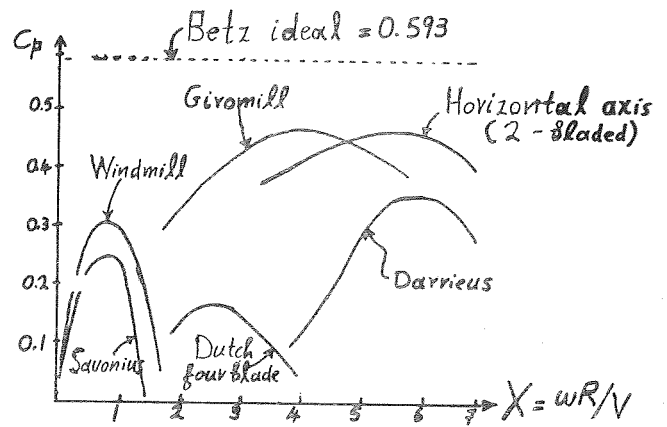 Cp
Betz ideal = 0.593
0.5
Giromill
Horizontal axis
(2 - bladed)
0.4
Windmill
0.3
0.2
Darrieus
0.1
Savonius
Dutch
four blade
1 2 3 4 5 6 7
X = ωR/V